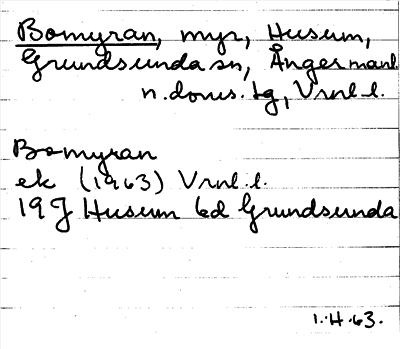 Bomyran, myr, Husum,
Grundsunda sn, Ångermanl.
n. doms. tg, Vrnl. l.
Bomyran
ek (1963) Vrnl. l.
19J Husum bd Grundsunda
1.H.63.